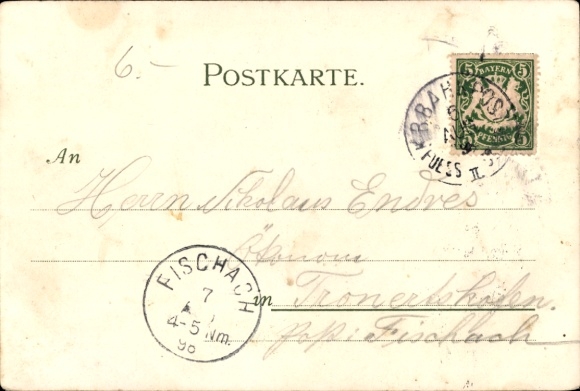 6.-
POSTKARTE.
5 BAYERN 5
5 PFENNIG 5
K.B.BAHNPOST
FUESS
II
An
Herrn Nikolaus Endres
Ökonom
in Tronertshofen.
pp: Fischach
FISCHACH
7
4-5 Nm.
98